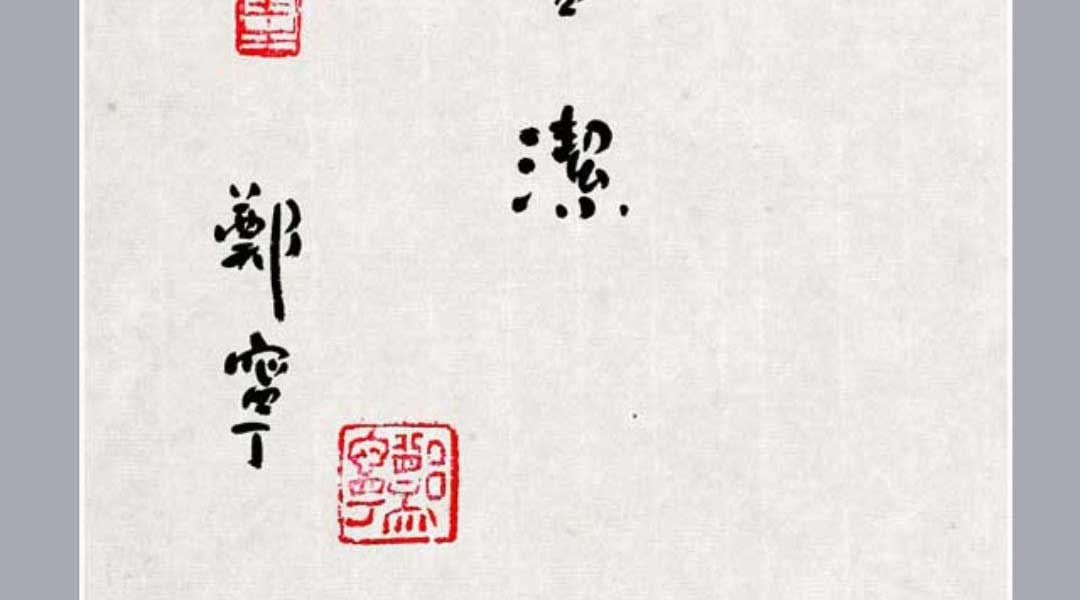 潔
鄭寧
鄭寧